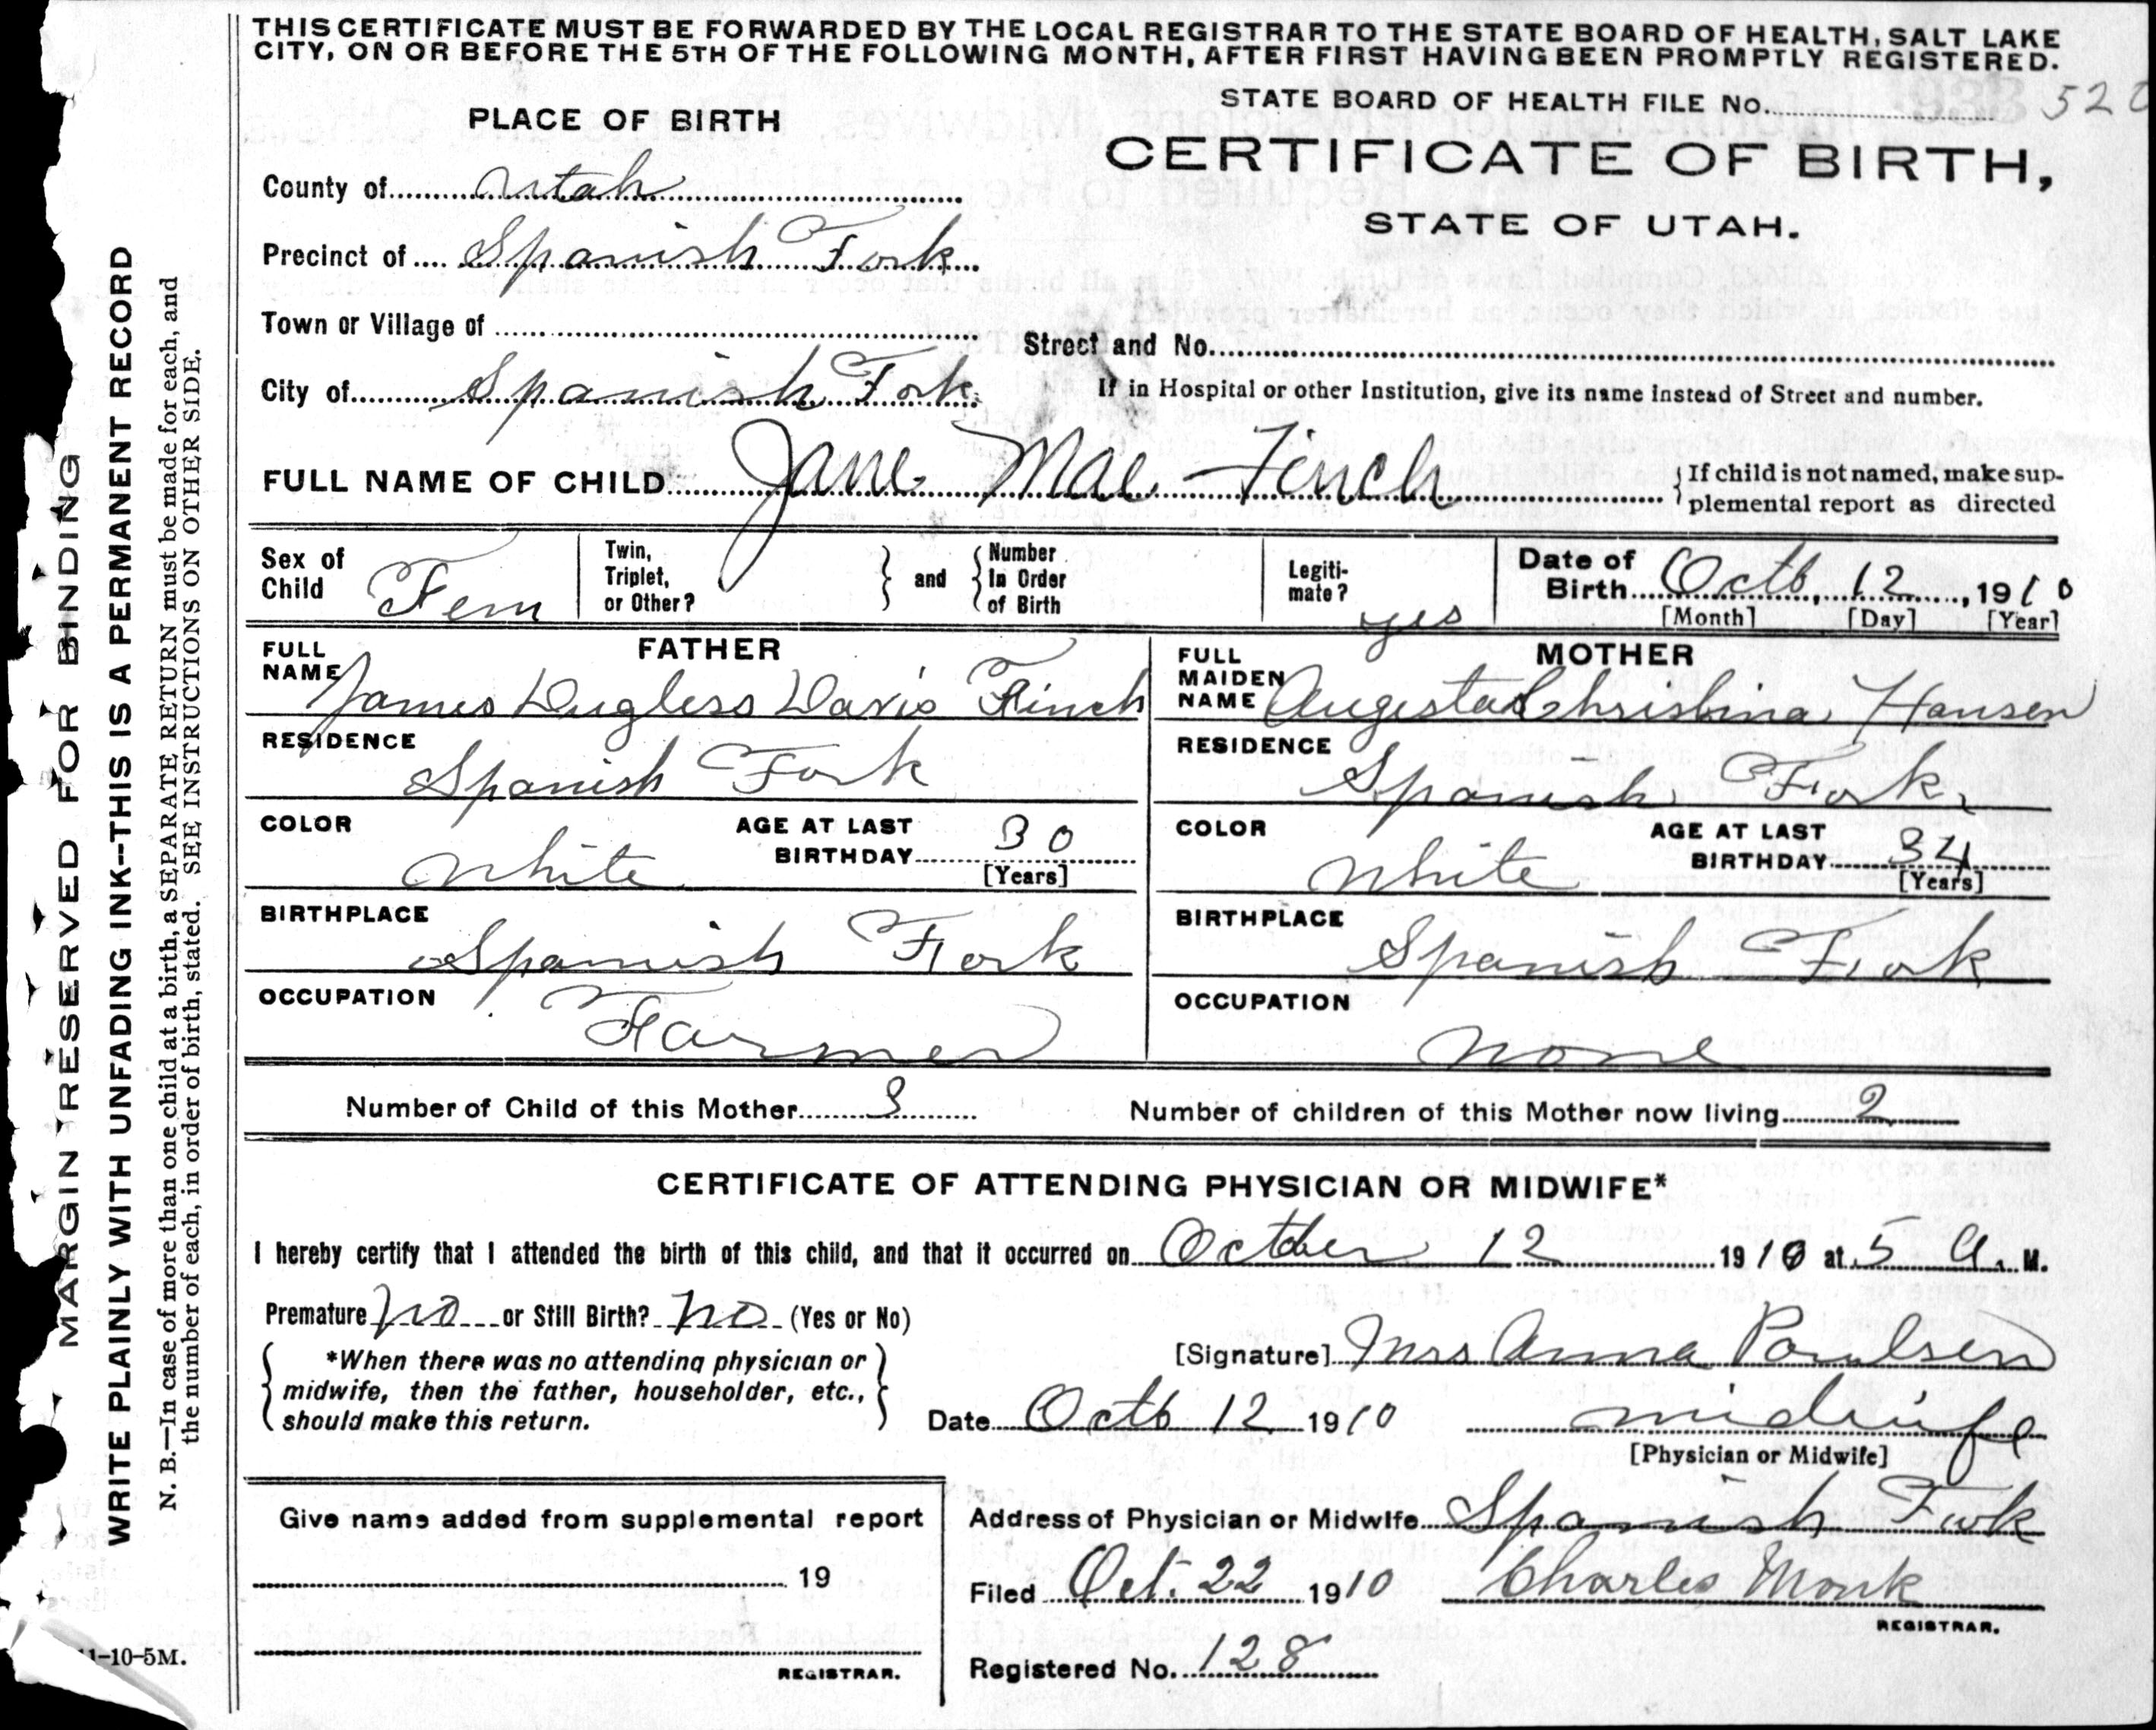 THIS CERTIFICATE MUST BE FORWARDED BY THE LOCAL REGISTRAR TO THE STATE BOARD OF HEALTH, SALT LAKE
CITY, ON OR BEFORE THE 5TH OF THE FOLLOWING MONTH, AFTER FIRST HAVING BEEN PROMPTLY REGISTERED.
STATE BOARD OF HEALTH FILE No. 520
PLACE OF BIRTH
CERTIFICATE OF BIRTH,
STATE OF UTAH.
County of Utah
Precinct of Spanish Fork
Town or Village of
Street and No.
City of Spanish Fork
If in Hospital or other Institution, give its name instead of Street and number.
FULL NAME OF CHILD Jane Mae Finch
If child is not named, make sup-
plemental report as directed
Sex of Child Fem
Twin, Triplet, or Other?
and
Number In Order of Birth
Legiti-mate? yes
Date of Birth Octb, 12, 1910
[Month] [Day] [Year]
FATHER
FULL NAME James Dugless Davis Finch
RESIDENCE
Spanish Fork
COLOR White
AGE AT LAST BIRTHDAY 30
[Years]
BIRTHPLACE
Spanish Fork
OCCUPATION
Farmer
MOTHER
FULL MAIDEN NAME Augusta Christina Hansen
RESIDENCE
Spanish Fork
COLOR White
AGE AT LAST BIRTHDAY 34
[Years]
BIRTHPLACE
Spanish Fork
OCCUPATION
none
Number of Child of this Mother 3
Number of children of this Mother now living 2
CERTIFICATE OF ATTENDING PHYSICIAN OR MIDWIFE*
I hereby certify that I attended the birth of this child, and that it occurred on October 12 1910 at 5 A. M.
Premature no or Still Birth? no (Yes or No)
*When there was no attending physician or
midwife, then the father, householder, etc.,
should make this return.
[Signature] Mrs Anna Poulsen
Date Octb 12 1910
midwife
[Physician or Midwife]
Give name added from supplemental report
19
REGISTRAR.
Address of Physician or Midwife Spanish Fork
Filed Oct. 22 1910 Charles Monk
REGISTRAR.
Registered No. 128
MARGIN RESERVED FOR BINDING
WRITE PLAINLY WITH UNFADING INK--THIS IS A PERMANENT RECORD
N. B.—In case of more than one child at a birth, a SEPARATE RETURN must be made for each, and
the number of each, in order of birth, stated. SEE INSTRUCTIONS ON OTHER SIDE.
1-10-5M.